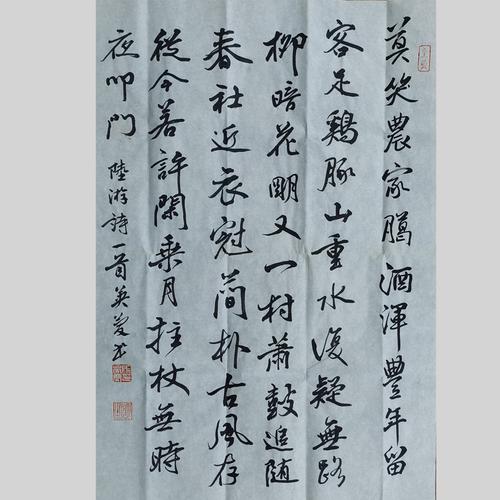 莫笑農家臈酒渾豐年留
客足鷄豚山重水復疑無路
柳暗花明又一村蕭鼓追随
春社近衣冠簡朴古風存
從今若許閑乗月拄杖無時
夜叩門
陸游詩一首英愛书